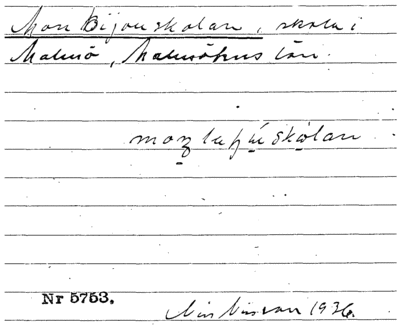 Mon Bijouskolan, skola i
Malmö, Malmöhus län.
skolan
Nr 5753.
Nilsson 1936.